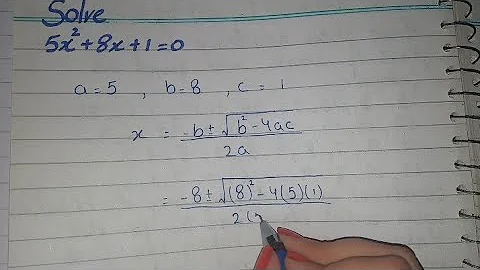 Solve
5x²+8x+1=0
a=5 , b=8 , c=1
x = -b±√b²-4ac / 2a
= -8±√(8)²-4(5)(1) / 2(